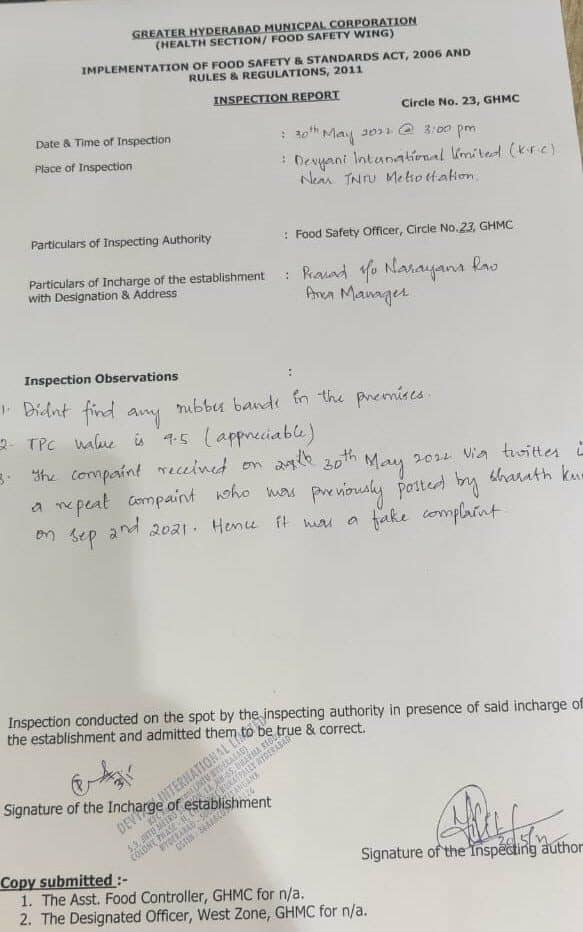 GREATER HYDERABAD MUNICPAL CORPORATION
(HEALTH SECTION/ FOOD SAFETY WING)
IMPLEMENTATION OF FOOD SAFETY & STANDARDS ACT, 2006 AND
RULES & REGULATIONS, 2011
INSPECTION REPORT
Circle No. 23, GHMC
Date & Time of Inspection : 30th May 2022 @ 3:00 pm
Place of Inspection : Devyani International limited (K.F.C)
Near JNTU Metro station.
Particulars of Inspecting Authority : Food Safety Officer, Circle No.23, GHMC
Particulars of Incharge of the establishment : Prasad s/o Narayana Rao
with Designation & Address Area Manager
Inspection Observations :
1. Didnt find any rubber bands in the premises.
2- TPC value is 9.5 (appreciable)
3. The compaint received on 30th May 2022 via twitter
a repeat compaint who was previously posted by Sharath
on Sep 2nd 2021. Hence it was a fake complaint.
Inspection conducted on the spot by the inspecting authority in presence of said incharge of
the establishment and admitted them to be true & correct.
DEVYANI INTERNATIONAL LIMITED
Signature of the Incharge of establishment
Signature of the Inspecting author
Copy submitted :-
1. The Asst. Food Controller, GHMC for n/a.
2. The Designated Officer, West Zone, GHMC for n/a.